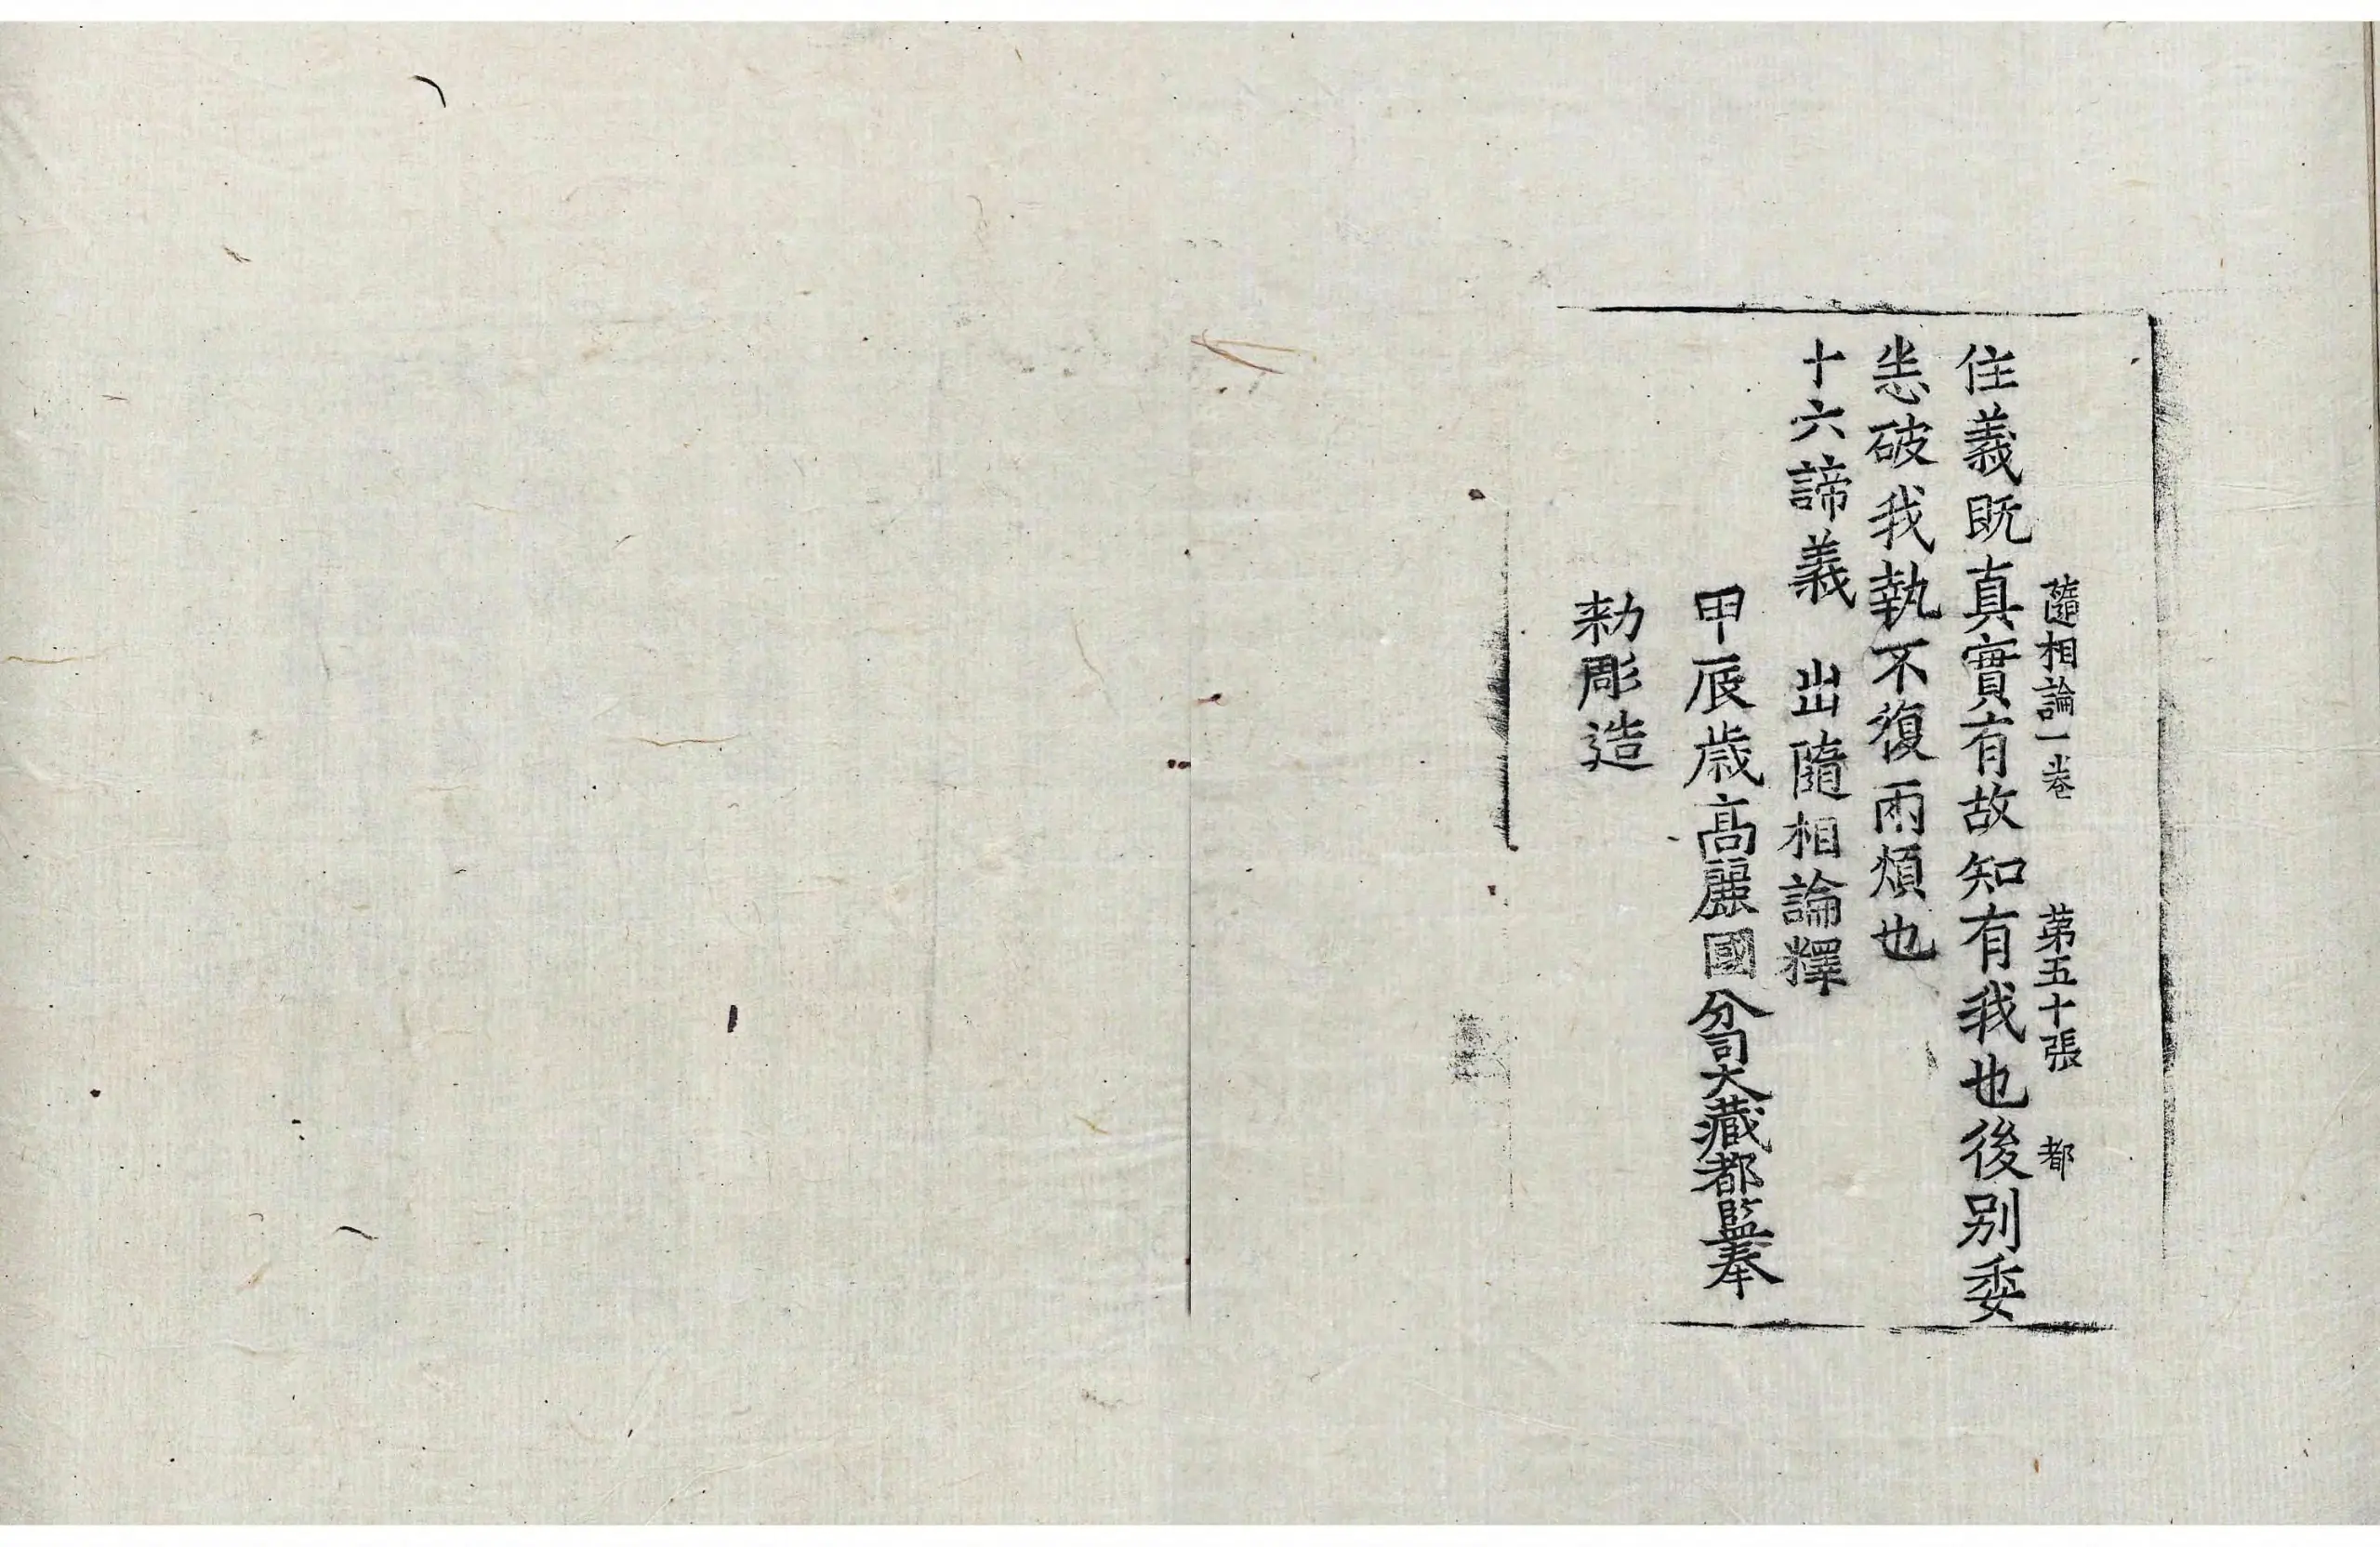 隨相論一卷 第五十張 都
住義既真實有故知有我也後別委
悉破我執不復兩煩也
十六諦義 出隨相論釋
甲辰歲高麗國分司大藏都監奉
勅彫造